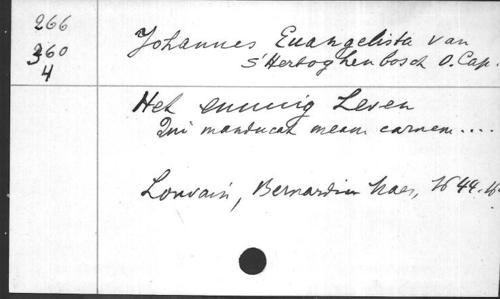 266
360
4
Johannes Euangelista van
s'Hertoghenbosch O. Cap.
Het eeuwig Leven
Qui manducat meam carnem....
Louvain, Bernardin Maes, 1644.